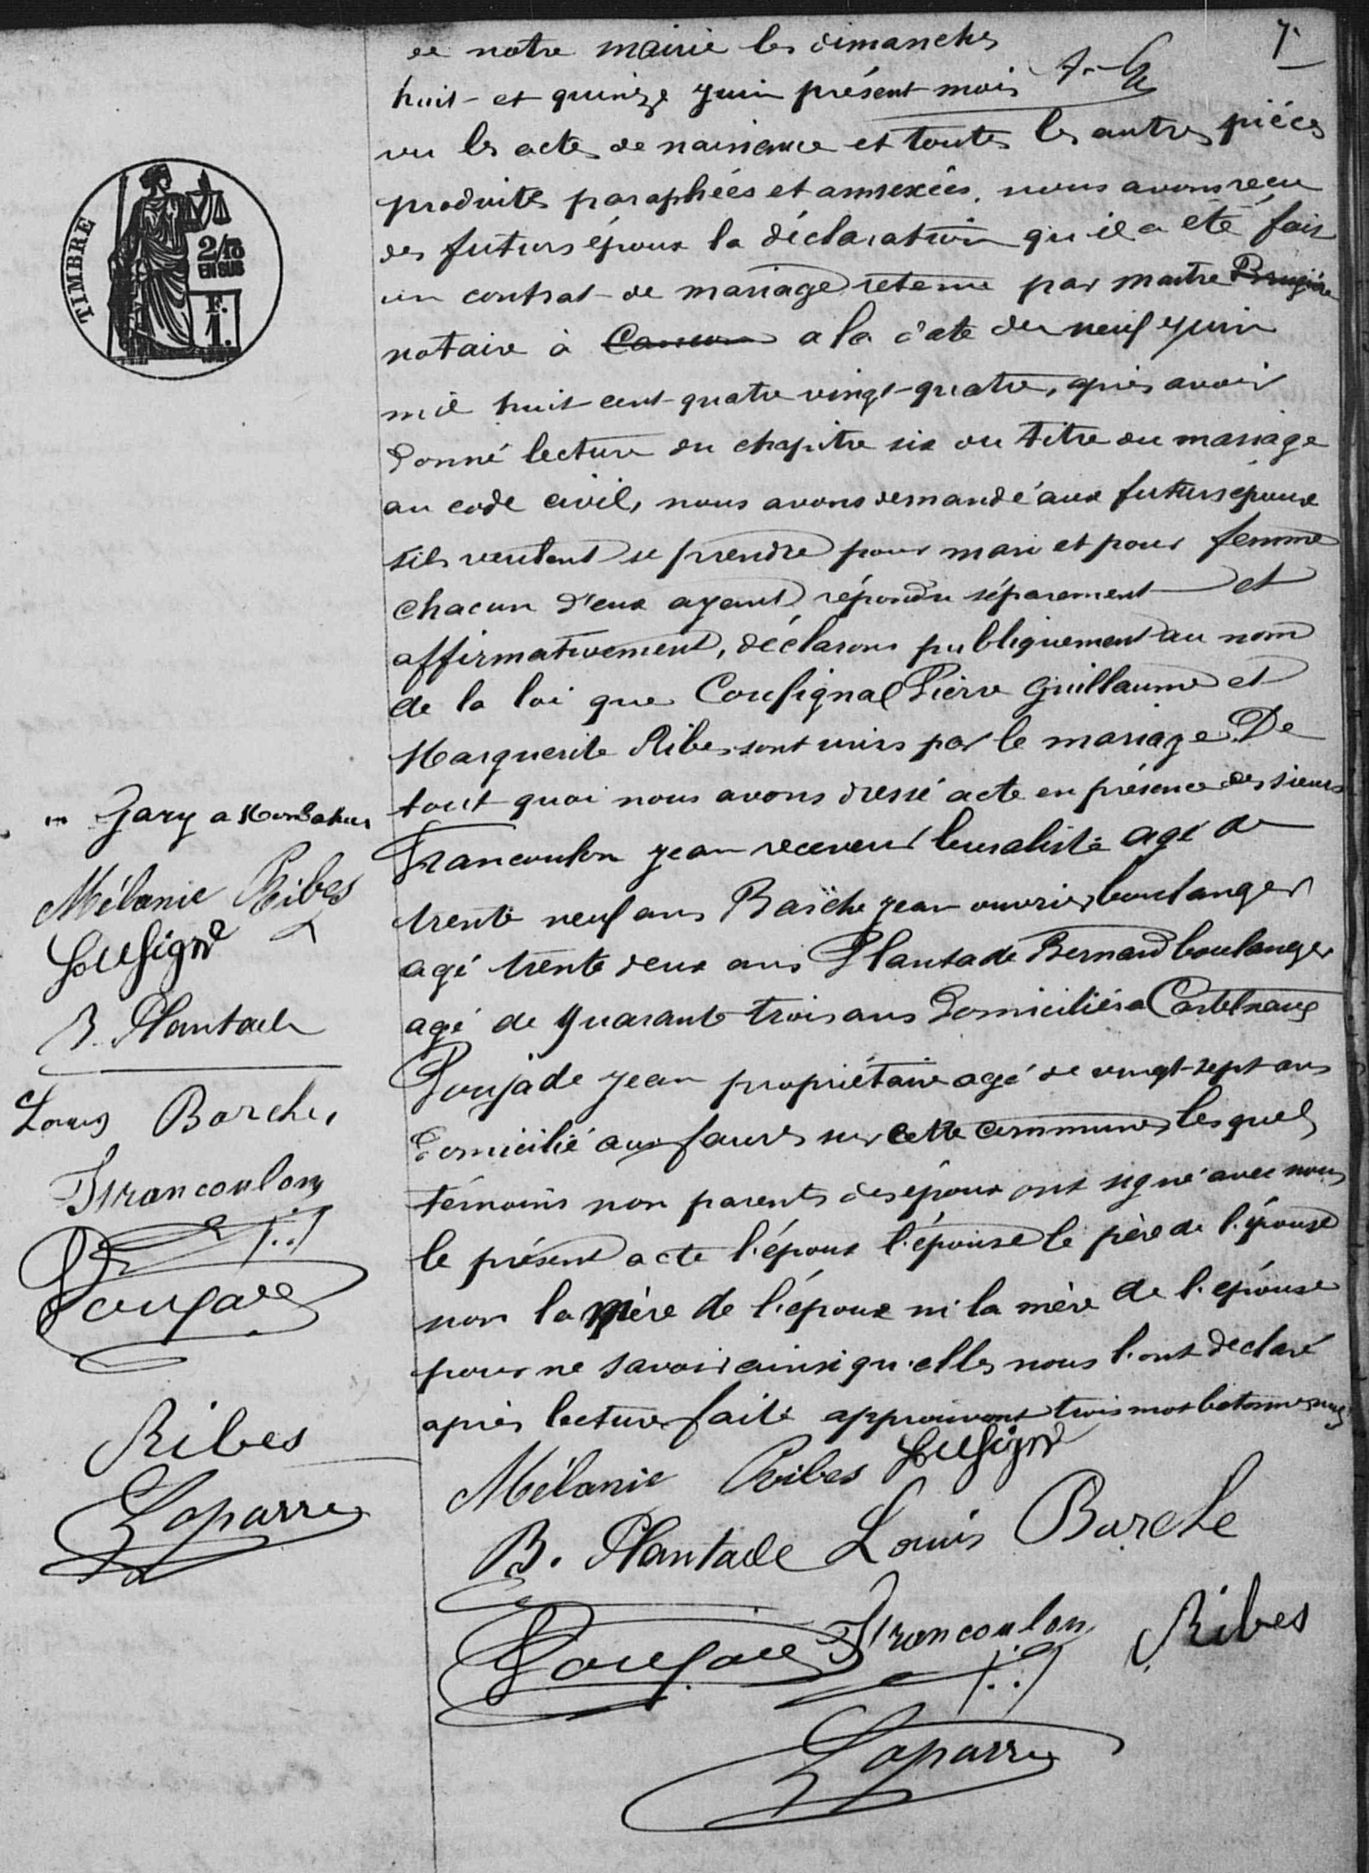 7
de notre mairie les dimanches
huit et quinze juin présent mois
vu les actes de naissance et toutes les autres pièces
produites paraphées et annexées, nous avons reçu
des futurs époux la déclaration qu'il a été fait
un contrat de mariage retenu par maitre Brugière
notaire à a la date du neuf juin
mil huit cent quatre vingt-quatre, après avoir
donné lecture du chapitre six du titre du mariage
au code civil, nous avons demandé aux futurs époux
s'ils veulent se prendre pour mari et pour femme
chacun d'eux ayant répondu séparement et
affirmativement, déclarons publiquement au nom
de la loi que Cousignal Pierre Guillaume et
Marguerite Ribes sont unis par le mariage. De
tout quoi nous avons dressé acte en présence des sieurs
Francoulon jean receveur buraliste agé de
trente neuf ans Barche jean ouvrier boulanger
agé trente deux ans Plantade Bernard boulanger
agé de quarante trois ans domiciliés a Castelnau
Poujade jean propriétaire agé de vingt-sept ans
domicilié aux faures sur cette commune lesquels
témoins non parents des époux ont signé avec nous
le présent acte l'époux l'épouse le père de l'épouse
non la mère de l'époux ni la mère de l'épouse
pour ne savoir ainsi qu'elles nous l'ont declaré
après lecture faite approuvant trois mots batonnés nuls
Mélanie Ribes Cousignal
B. Plantade Louis Barche
Poujade Francoulon Ribes
Laparre
TIMBRE
2/10
EN SUS
F.
1.
Gary a
Mélanie Ribes
Cousignal
B. Plantade
Louis Barche,
Francoulon
Poujade
Ribes
Laparre